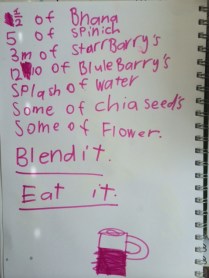 ½ of Bnana
5 of spinich
3m of StarrBarry's
12 10 of BluleBarry's
Splash of water
Some of chia seed's
Some of Flower.
Blend it.
Eat it.